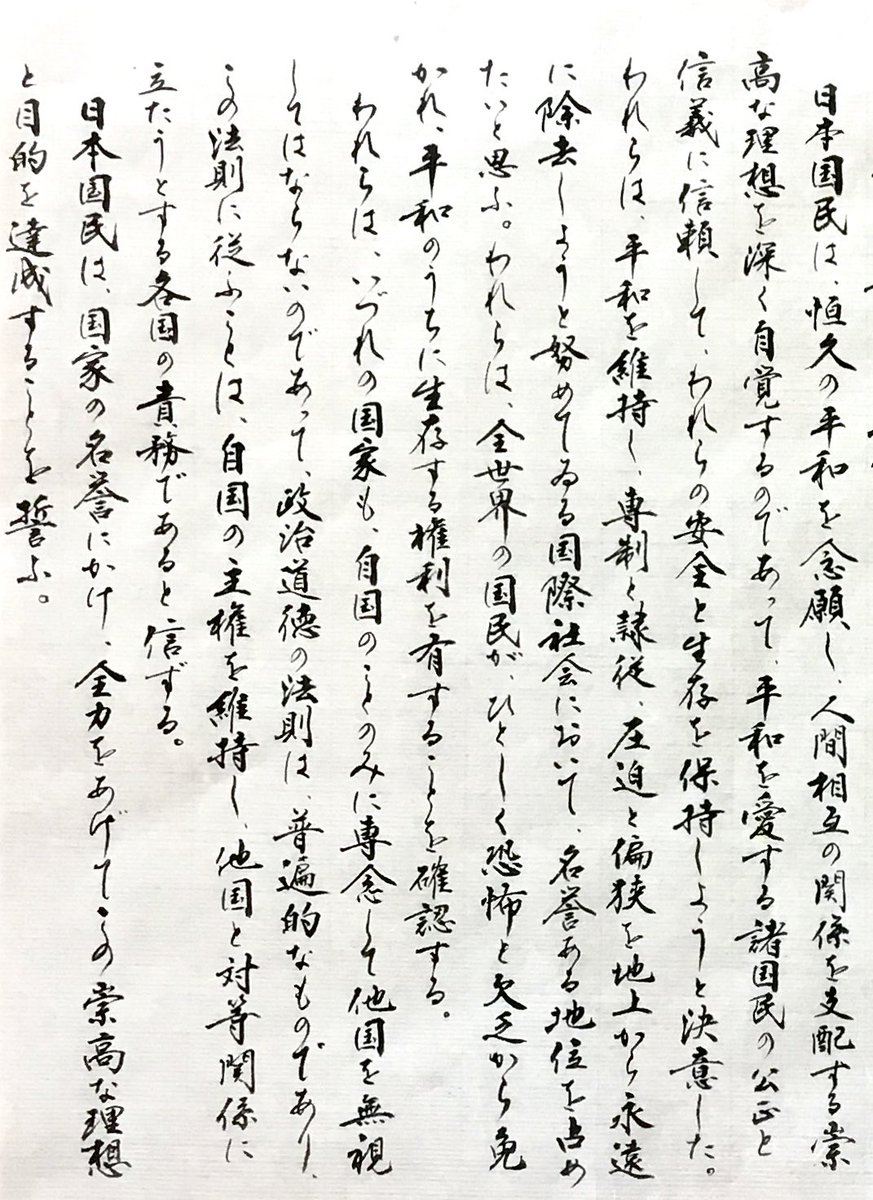 日本国民は、恒久の平和を念願し、人間相互の関係を支配する崇
高な理想を深く自覚するのであって、平和を愛する諸国民の公正と
信義に信頼して、われらの安全と生存を保持しようと決意した。
われらは、平和を維持し、専制と隷従、圧迫と偏狭を地上から永遠
に除去しようと努めてゐる国際社会において、名誉ある地位を占め
たいと思ふ。われらは、全世界の国民が、ひとしく恐怖と欠乏から免
かれ、平和のうちに生存する権利を有することを確認する。
われらは、いづれの国家も、自国のことのみに専念して他国を無視
してはならないのであって、政治道徳の法則は、普遍的なものであり、
この法則に従ふことは、自国の主権を維持し、他国と対等関係に
立たうとする各国の責務であると信ずる。
日本国民は、国家の名誉にかけ、全力をあげてこの崇高な理想
と目的を達成することを誓ふ。